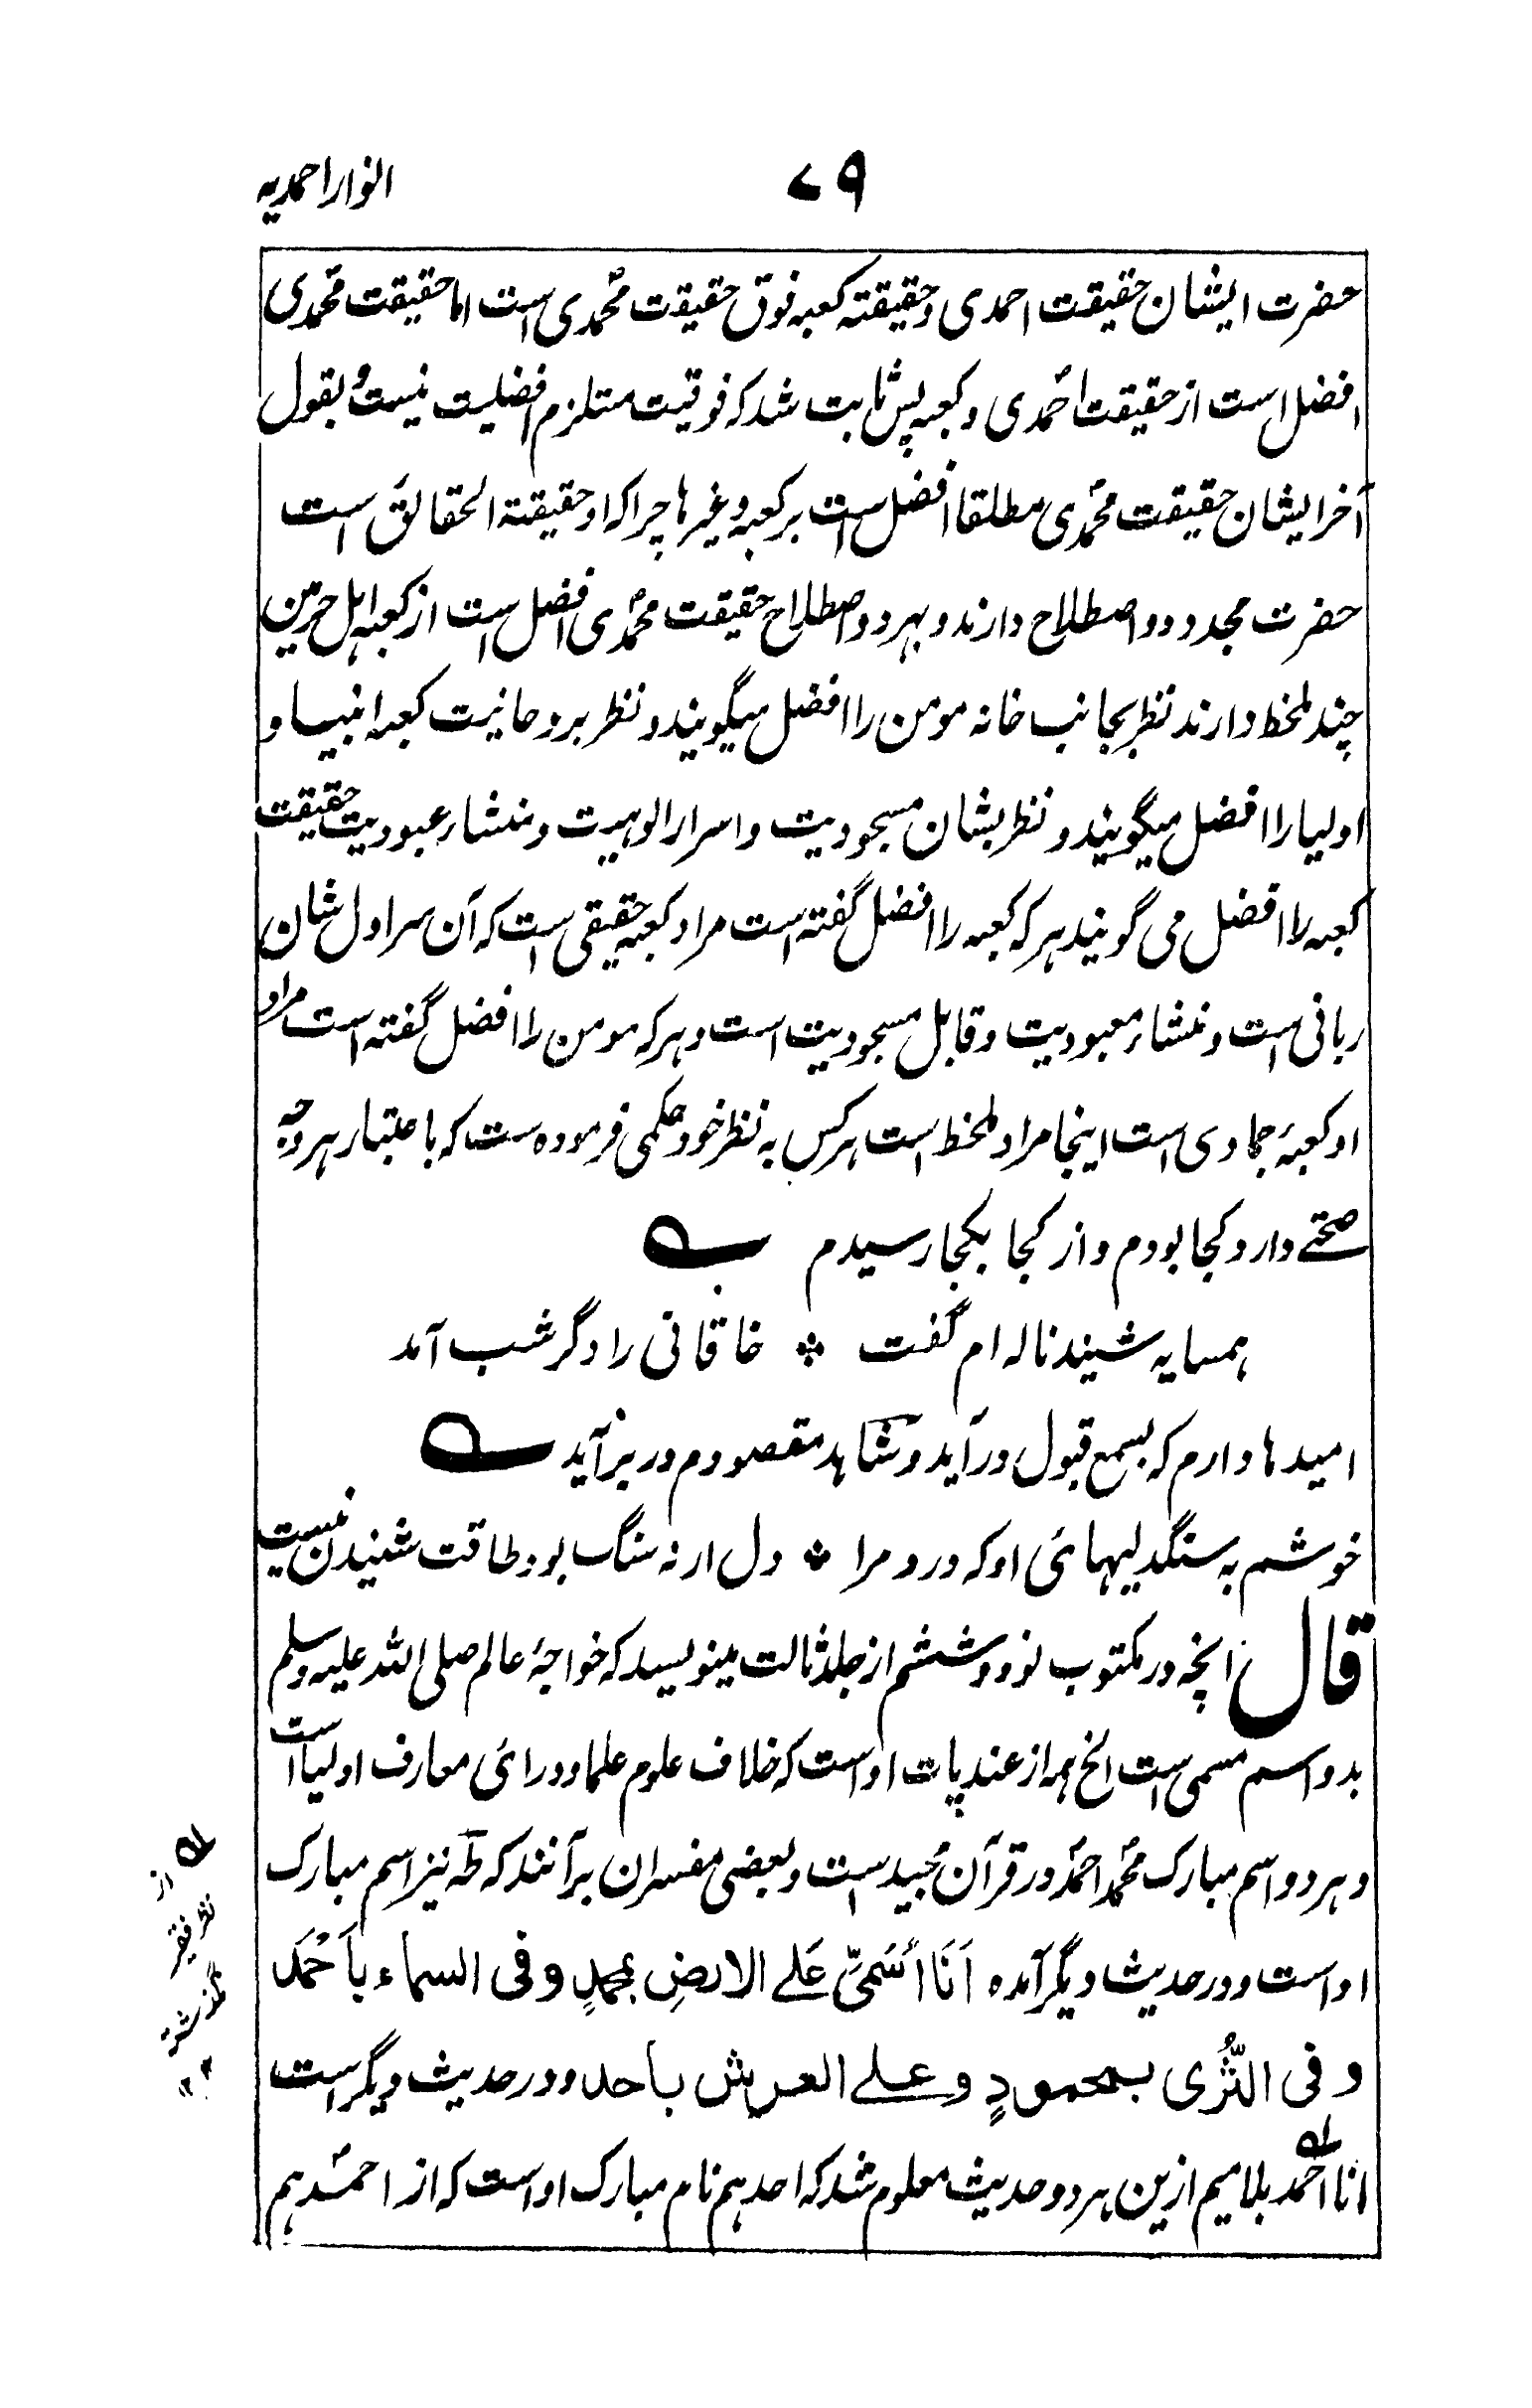 ۷۹
انوار احمدیہ
حضرت ایشان حقیقت احمدی وحقیقتہ کعبہ فوق حقیقت محمدی است اما حقیقت محمدی
افضل است از حقیقت احمدی و کعبہ پس ثابت شد کہ فوقیت مستلزم افضلیت نیست و بقول
آخر ایشان حقیقت محمدی مطلقا افضل است بر کعبہ و غیرہا چرا کہ او حقیقتة الحقائق است
حضرت مجدد دو اصطلاح دارند و بہر دو اصطلاح حقیقت محمدی افضل است از کعبہ اہل حرمین
چند لمحظ دارند نظر بجانب خانہ مومن را افضل میگویند و نظر بروحانیت کعبہ انبیا و
اولیا را افضل میگویند و نظر بشان مسجودیت و اسرار الوہیت و منشار عبودیت حقیقت
کعبہ را افضل می گویند ہر کہ کعبہ را افضل گفتہ است مراد کعبہ حقیقی است کہ آن سر اول شان
ربانی است و منشاء معبودیت و قابل مسجودیت است و ہر کہ مومن را افضل گفتہ است مراد
او کعبۂ جمادی است اینجا مراد لمحظ است ہر کس بہ نظر خود حکمی فرمودہ ست کہ باعتبار ہر وجہ
صحتے دارد کجا بودم و از کجا بکجا رسیدم
ہمسایہ شنید نالہ ام گفت ٭ خاقانی را دگر شب آمد
امیدہا دارم کہ بسمع قبول در آید و شاہد مقصودم در بر آید
خوشم بہ سنگدلیہائی او کہ درد مرا ٭ دل ار نہ سنگ بود طاقت شنیدن نیست
قال انچہ در مکتوب نود و ششم از جلد ثالث مینویسد کہ خواجۂ عالم صلی اللہ علیہ وسلم
بدو اسم مسمی است الخ ہمہ از عندیات او است کہ خلاف علوم علما و ورائی معارف اولیا است
و ہر دو اسم مبارک محمد احمد در قرآن مجید است و بعضی مفسران بر آنند کہ طہ نیز اسم مبارک
او است و در حدیث دیگر آمدہ اَنَا اُسَمّیٰ عَلے الارضِ بمحمدٍ وفی السماء باَحْمَد
وفی الثّرٰی بمحمودٍ وعلے العرش باحد و در حدیث دیگر است
انا احمد بلا میم ازین ہر دو حدیث معلوم شد کہ احد ہم نام مبارک او است کہ از احمد ہم
لہ از
نظر فقیر
نگذشتہ
۱۲